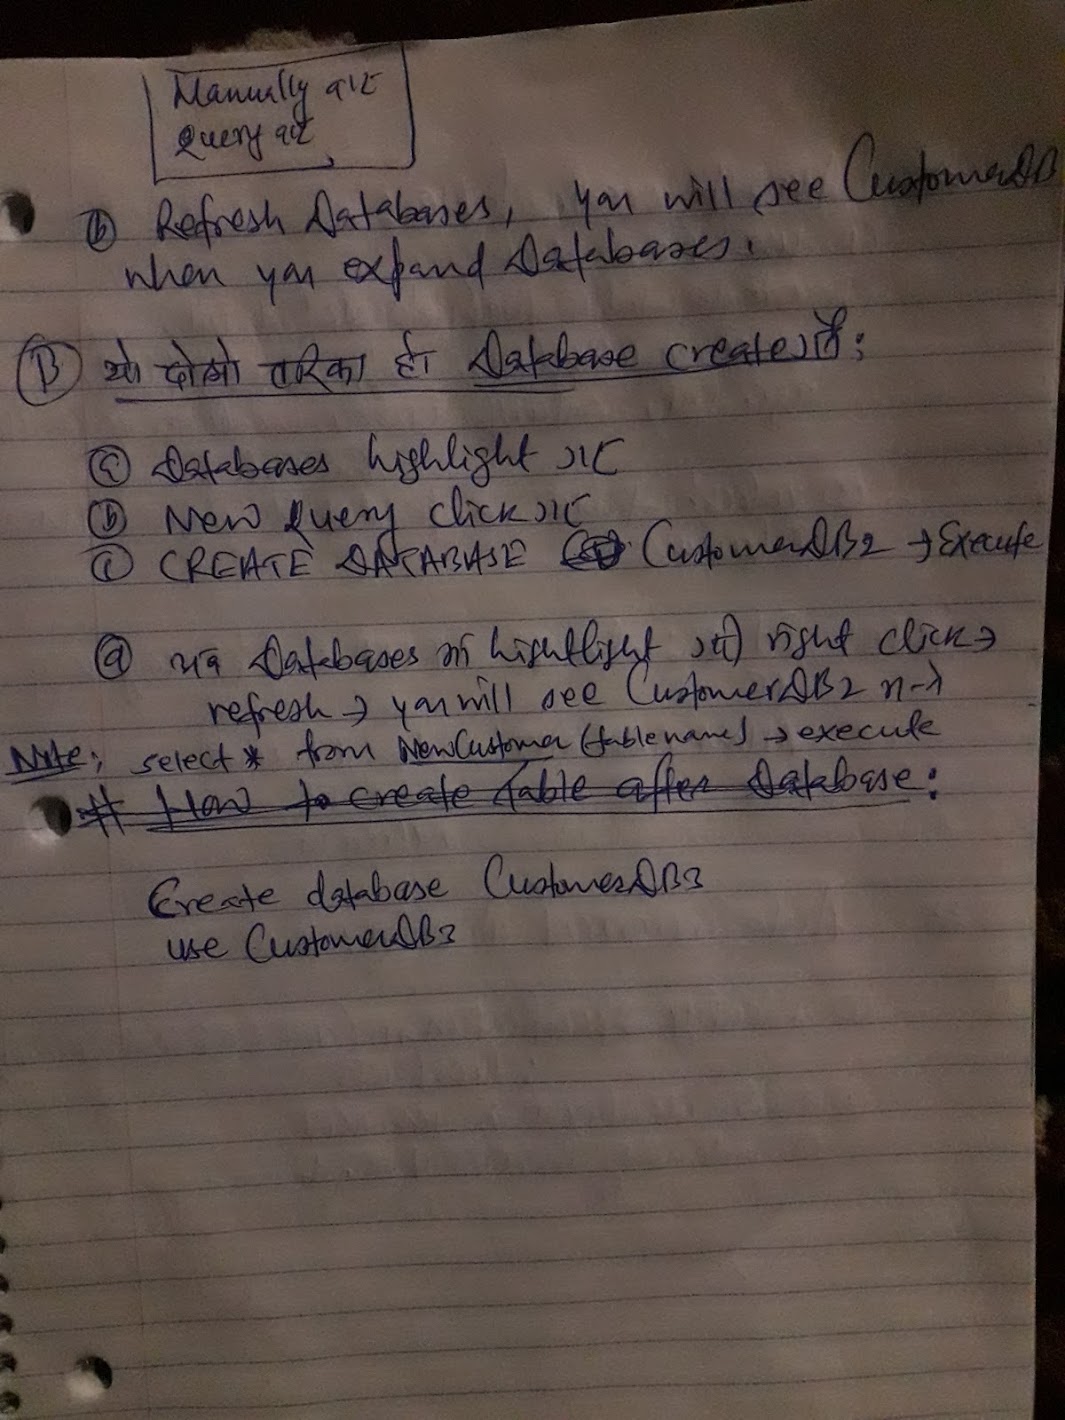 Manually बाट
Query बाट
(b) Refresh Databases, you will see CustomerDB
when you expand Databases.
(B) यो दोस्रो तरिका हो Database create गर्ने:
(a) Databases highlight गर
(b) New Query click गर
(c) CREATE DATABASE CustomerDB2 → Execute
(d) अब Databases मा hightlight गरी right click →
refresh → you will see CustomerDB2
Note: select * from NewCustomer (table name) → execute
# How to create table after Database:
Create database CustomerDB3
use CustomerDB3